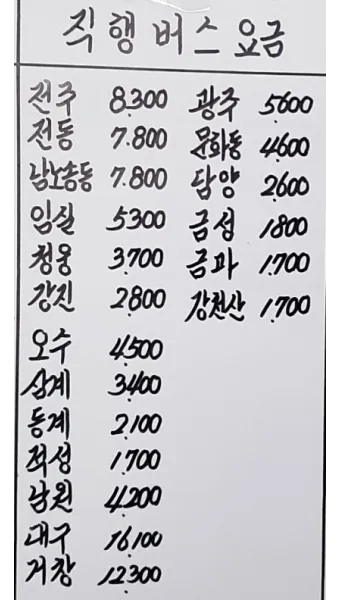 직행버스요금
전주 8.300 광주 5.600
전동 7.800 문화동 4.600
남노송동 7.800 담양 2.600
임실 5300 금성 1800
청웅 3.700 금과 1.700
강진 2.800 강천산 1.700
오수 4.500
삼계 3.400
동계 2.100
적성 1.700
남원 4.200
대구 16.100
거창 12.300